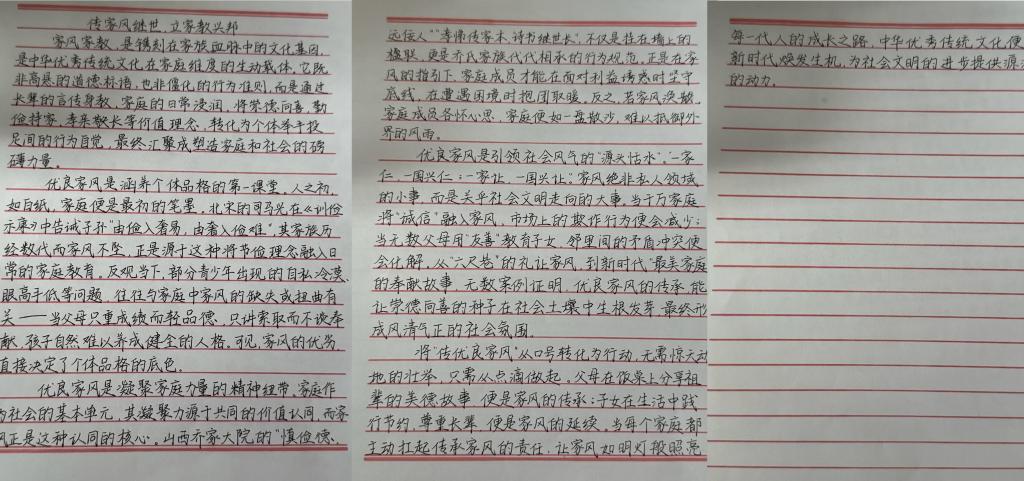 传家风继世，立家教兴邦
家风家教，是镌刻在家族血脉中的文化基因，
是中华优秀传统文化在家庭维度的生动载体，它既
非高悬的道德标语，也非僵化的行为准则，而是通过
长辈的言传身教、家庭的日常浸润，将崇德向善，勤
俭持家，孝亲敬长等价值理念，转化为个体举手投
足间的行为自觉，最终汇聚成塑造家庭和社会的磅
礴力量。
优良家风是涵养个体品格的第一课堂。人之初，
如白纸，家庭便是最初的笔墨。北宋的司马光在《训俭
示康》中告诫子孙"由俭入奢易，由奢入俭难"其家族历
经数代而家风不坠，正是源于这种将节俭理念融入日
常的家庭教育。反观当下，部分青少年出现的自私冷漠、
眼高手低等问题，往往与家庭中家风的缺失或扭曲有
关——当父母只重成绩而轻品德，只讲索取而不谈奉
献，孩子自然难以养成健全的人格。可见，家风的优劣，
直接决定了个体品格的底色。
优良家风是凝聚家庭力量的精神纽带，家庭作
为社会的基本单元，其凝聚力源于共同的价值认同，而家
风正是这种认同的核心。山西乔家大院的"慎俭德、
远佞人""孝悌传家本，诗书继世长"，不仅是挂在墙上的
楹联，更是乔氏家族代代相承的行为规范，正是在家
风的指引下，家庭成员才能在面对利益诱惑时坚守
底线，在遭遇困境时抱团取暖。反之，若家风涣散，
家庭成员各怀心思，家庭便如一盘散沙，难以抵御外
界的风雨。
优良家风是引领社会风气的"源头活水"，"一家
仁，一国兴仁；一家让，一国兴让。"家风绝非私人领域
的小事，而是关乎社会文明走向的大事。当千万家庭
将"诚信"融入家风，市场上的欺诈行为便会减少；
当无数父母用"友善"教育子女，邻里间的矛盾冲突便
会化解，从"六尺巷"的礼让家风，到新时代"最美家庭"
的奉献故事，无数案例证明，优良家风的传承，能
让崇德向善的种子在社会土壤中生根发芽，最终形
成风清气正的社会氛围。
将"传优良家风"从口号转化为行动，无需惊天动
地的壮举，只需从点滴做起。父母在饭桌上分享祖
辈的美德故事，便是家风的传承；子女在生活中践
行节约，尊重长辈，便是家风的延续。当每个家庭都
主动扛起传承家风的责任，让家风如明灯般照亮
每一代人的成长之路，中华优秀传统文化便
新时代焕发生机，为社会文明的进步提供源
的动力。